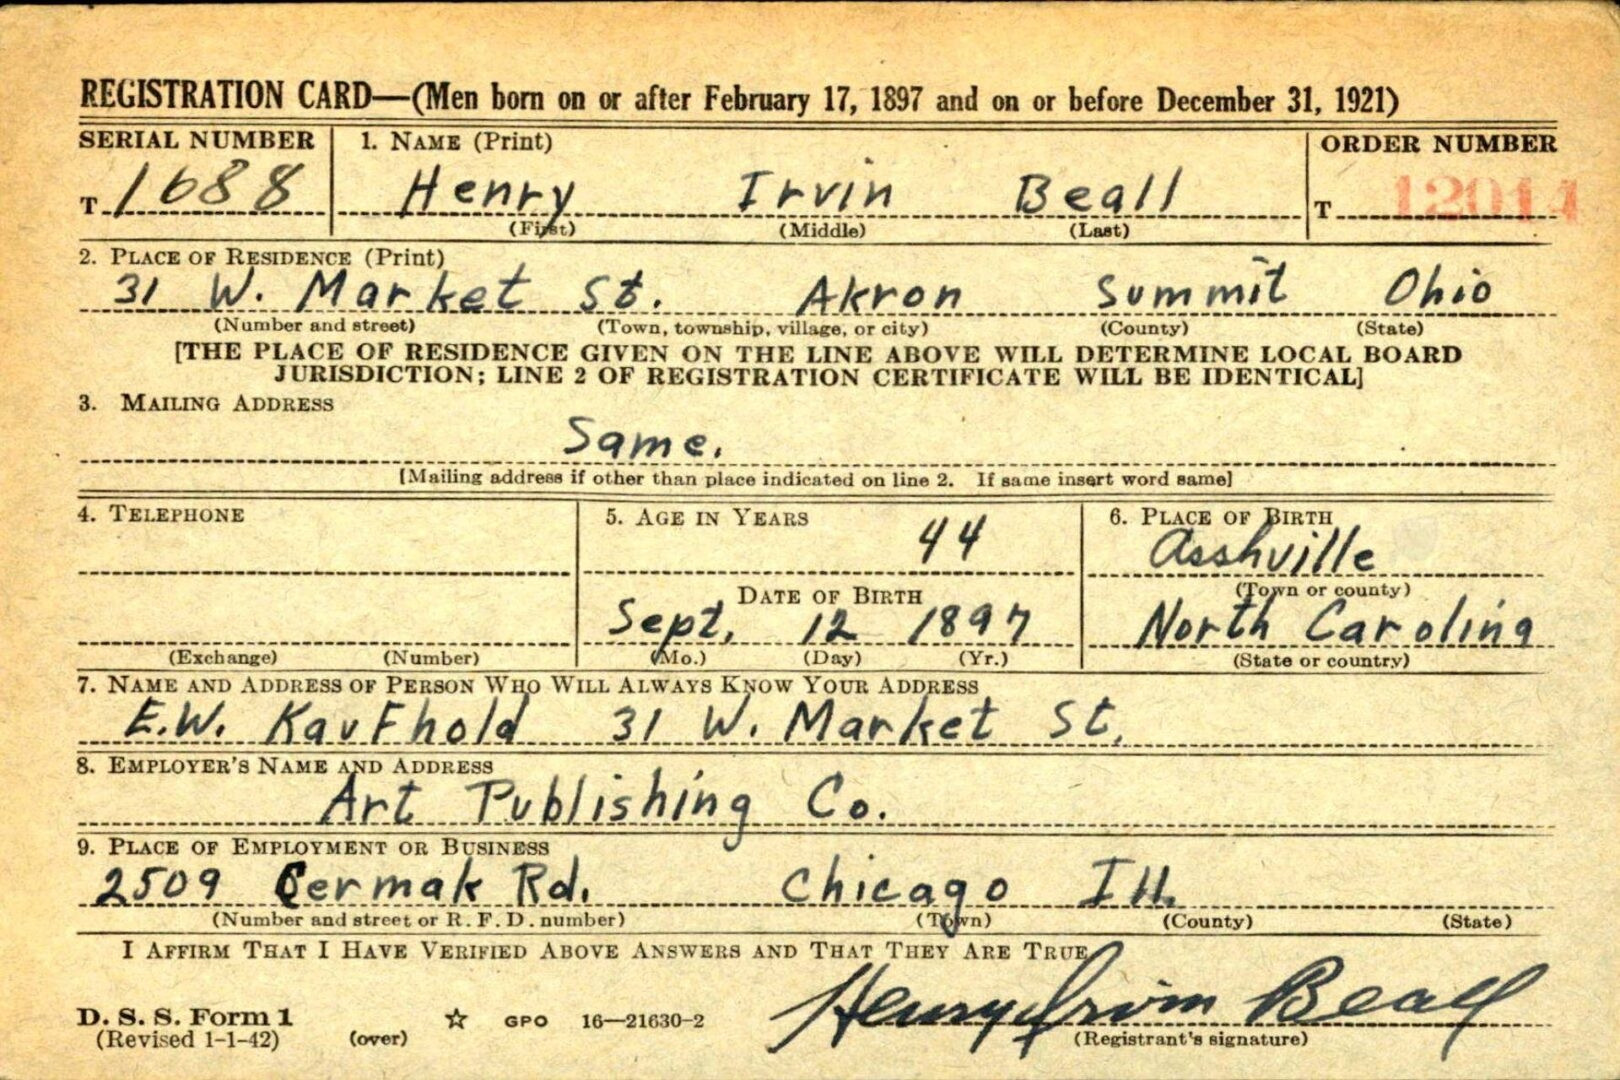 REGISTRATION CARD—(Men born on or after February 17, 1897 and on or before December 31, 1921)
SERIAL NUMBER 1. NAME (Print) ORDER NUMBER
T 1688 Henry Irvin Beall T 12014
(First) (Middle) (Last)
2. PLACE OF RESIDENCE (Print)
31 W. Market St. Akron Summit Ohio
(Number and street) (Town, township, village, or city) (County) (State)
[THE PLACE OF RESIDENCE GIVEN ON THE LINE ABOVE WILL DETERMINE LOCAL BOARD
JURISDICTION; LINE 2 OF REGISTRATION CERTIFICATE WILL BE IDENTICAL]
3. MAILING ADDRESS
Same.
[Mailing address if other than place indicated on line 2. If same insert word same]
4. TELEPHONE 5. AGE IN YEARS 6. PLACE OF BIRTH
44 Asshville
(Town or county)
DATE OF BIRTH
Sept. 12 1897 North Carolina
(Exchange) (Number) (Mo.) (Day) (Yr.) (State or country)
7. NAME AND ADDRESS OF PERSON WHO WILL ALWAYS KNOW YOUR ADDRESS
E.W. Kaufhold 31 W. Market St.
8. EMPLOYER'S NAME AND ADDRESS
Art Publishing Co.
9. PLACE OF EMPLOYMENT OR BUSINESS
2509 Cermak Rd. Chicago Ill.
(Number and street or R. F. D. number) (Town) (County) (State)
I AFFIRM THAT I HAVE VERIFIED ABOVE ANSWERS AND THAT THEY ARE TRUE
D. S. S. Form 1
(Revised 1-1-42) (over) ☆ GPO 16—21630-2 Henry Irvin Beall
(Registrant's signature)